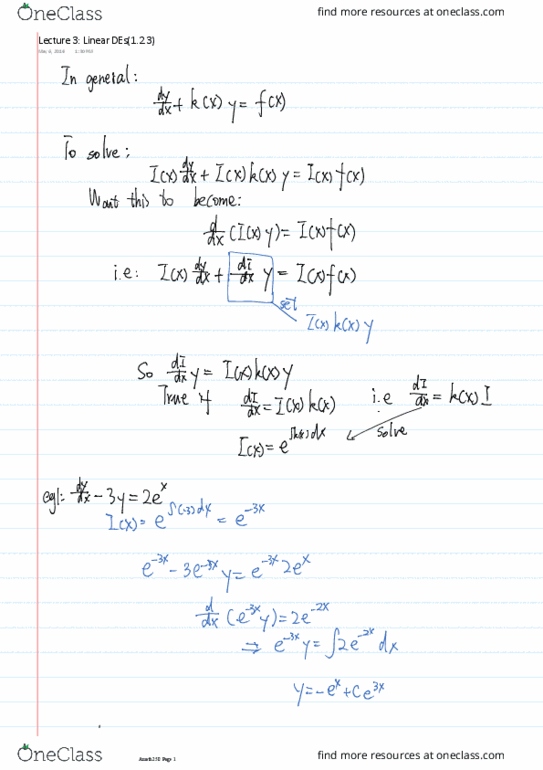 OneClass find more resources at oneclass.com
Lecture 3: Linear DEs(1.2.3)
In general:
dy/dx + k(x) y = f(x)
To solve:
I(x) dy/dx + I(x) k(x) y = I(x) f(x)
Want this to become:
d/dx (I(x) y) = I(x) f(x)
i.e: I(x) dy/dx + dI/dx y = I(x) f(x)
set
I(x) k(x) y
So dI/dx y = I(x) k(x) y
True if dI/dx = I(x) k(x) i.e dI/dx = k(x) I
solve
I(x) = e^∫k(x) dx
eg1: dy/dx - 3y = 2e^x
I(x) = e^∫(-3) dx = e^-3x
e^-3x - 3e^-3x y = e^-3x 2e^x
d/dx (e^-3x y) = 2e^-2x
⇒ e^-3x y = ∫2e^-2x dx
y = -e^x + Ce^3x
OneClass Page 1 find more resources at oneclass.com